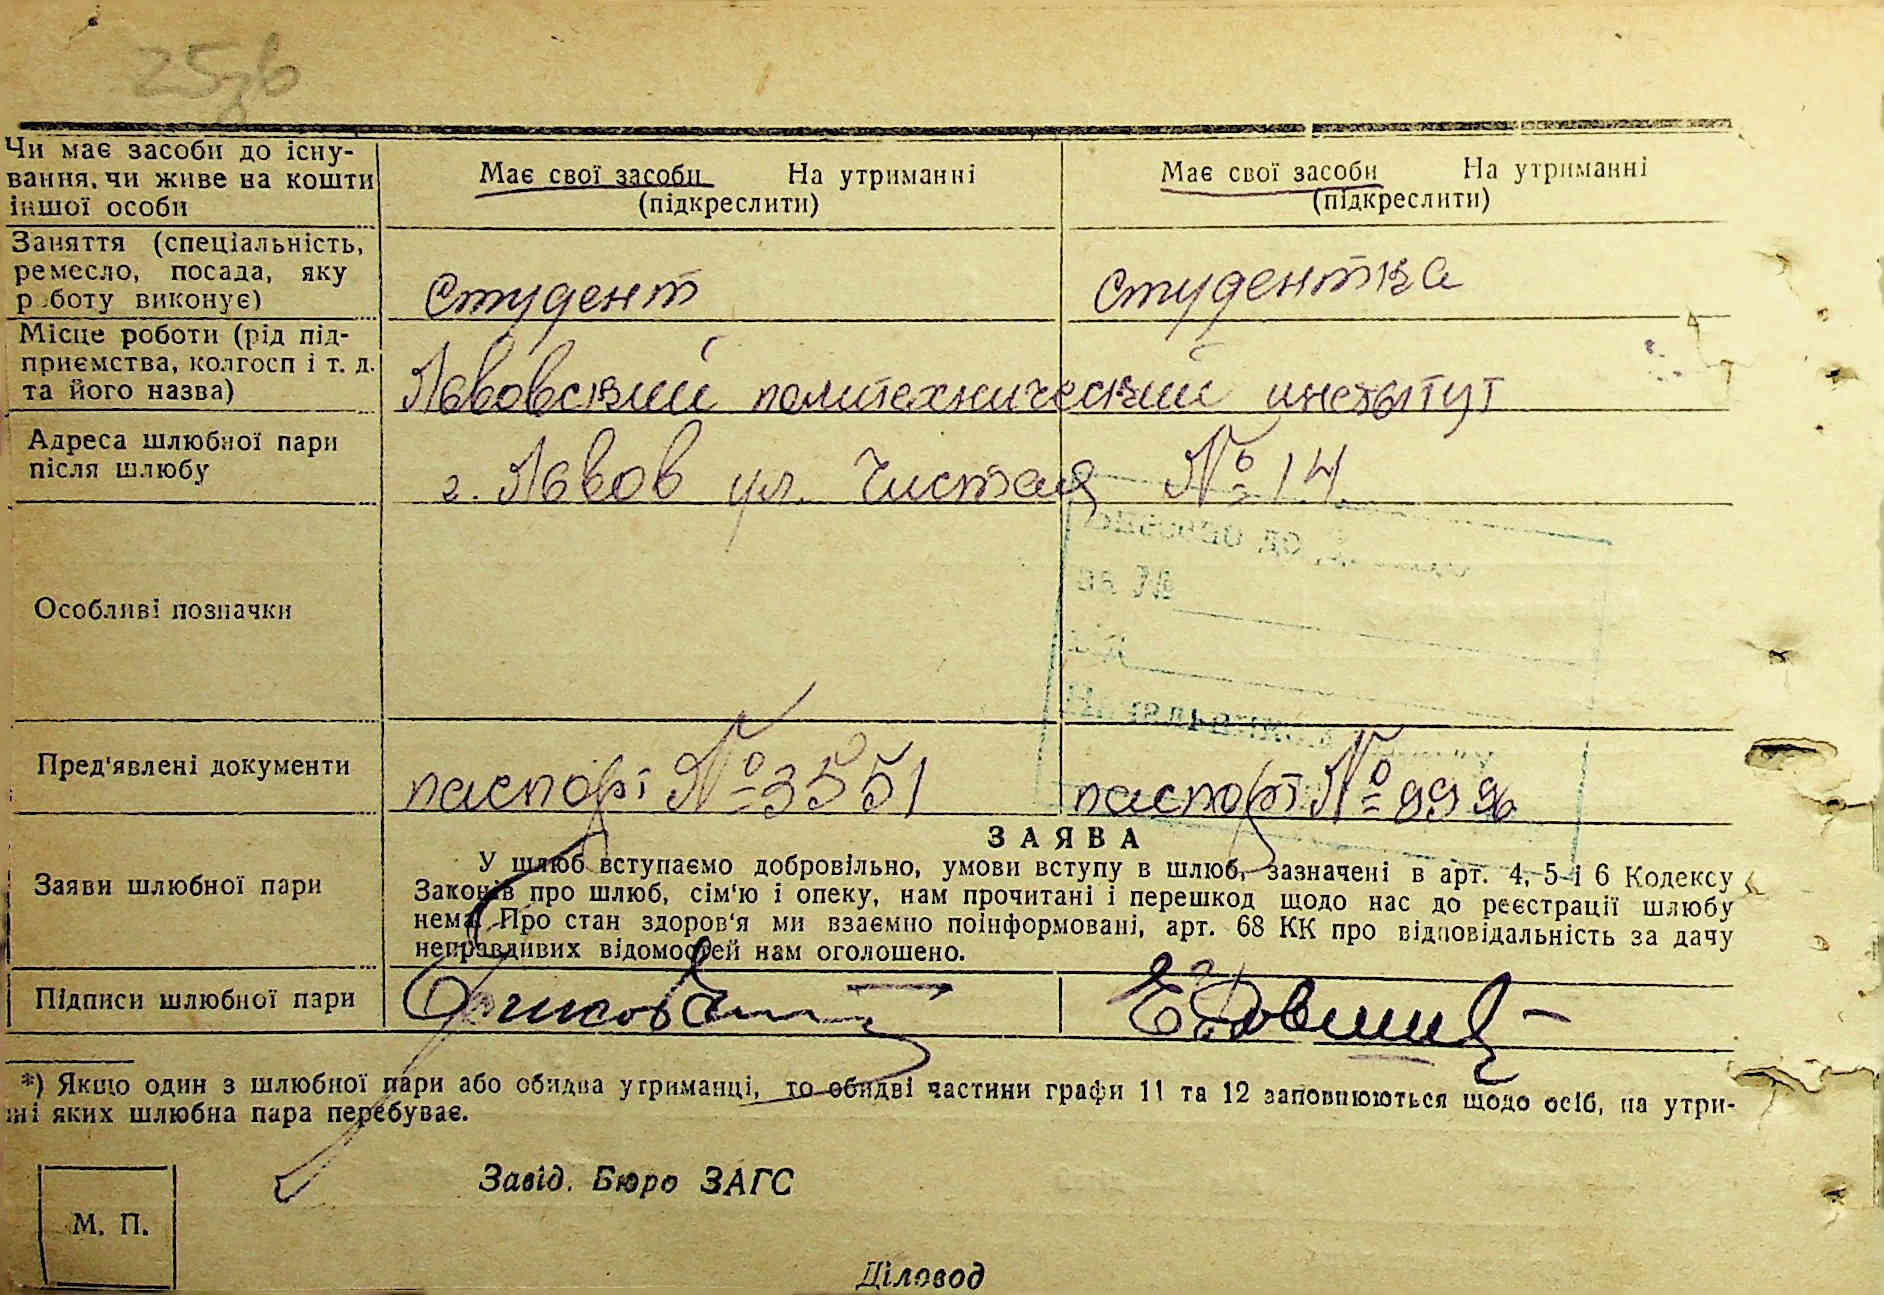 25зв
Чи має засоби до існу-
вання, чи живе на кошти
іншої особи
Має свої засоби На утриманні
(підкреслити)
Має свої засоби На утриманні
(підкреслити)
Заняття (спеціальність,
ремесло, посада, яку
роботу виконує)
студент
студентка
Місце роботи (рід під-
приємства, колгосп і т. д.
та його назва)
Львовский политехнический институт
Адреса шлюбної пари
після шлюбу
г. Львов ул. Чистая № 14
Особливі позначки
Пред'явлені документи
паспорт № 3551
паспорт №
Заяви шлюбної пари
ЗАЯВА
У шлюб вступаємо добровільно, умови вступу в шлюб, зазначені в арт. 4, 5 і 6 Кодексу
Законів про шлюб, сім'ю і опеку, нам прочитані і перешкод щодо нас до реєстрації шлюбу
нема. Про стан здоров'я ми взаємно поінформовані, арт. 68 КК про відповідальність за дачу
неправдивих відомостей нам оголошено.
Підписи шлюбної пари
*) Якщо один з шлюбної пари або обидва утриманці, то обидві частини графи 11 та 12 заповнюються щодо осіб, на утри-
ні яких шлюбна пара перебуває.
Завід. Бюро ЗАГС
М. П.
Діловод